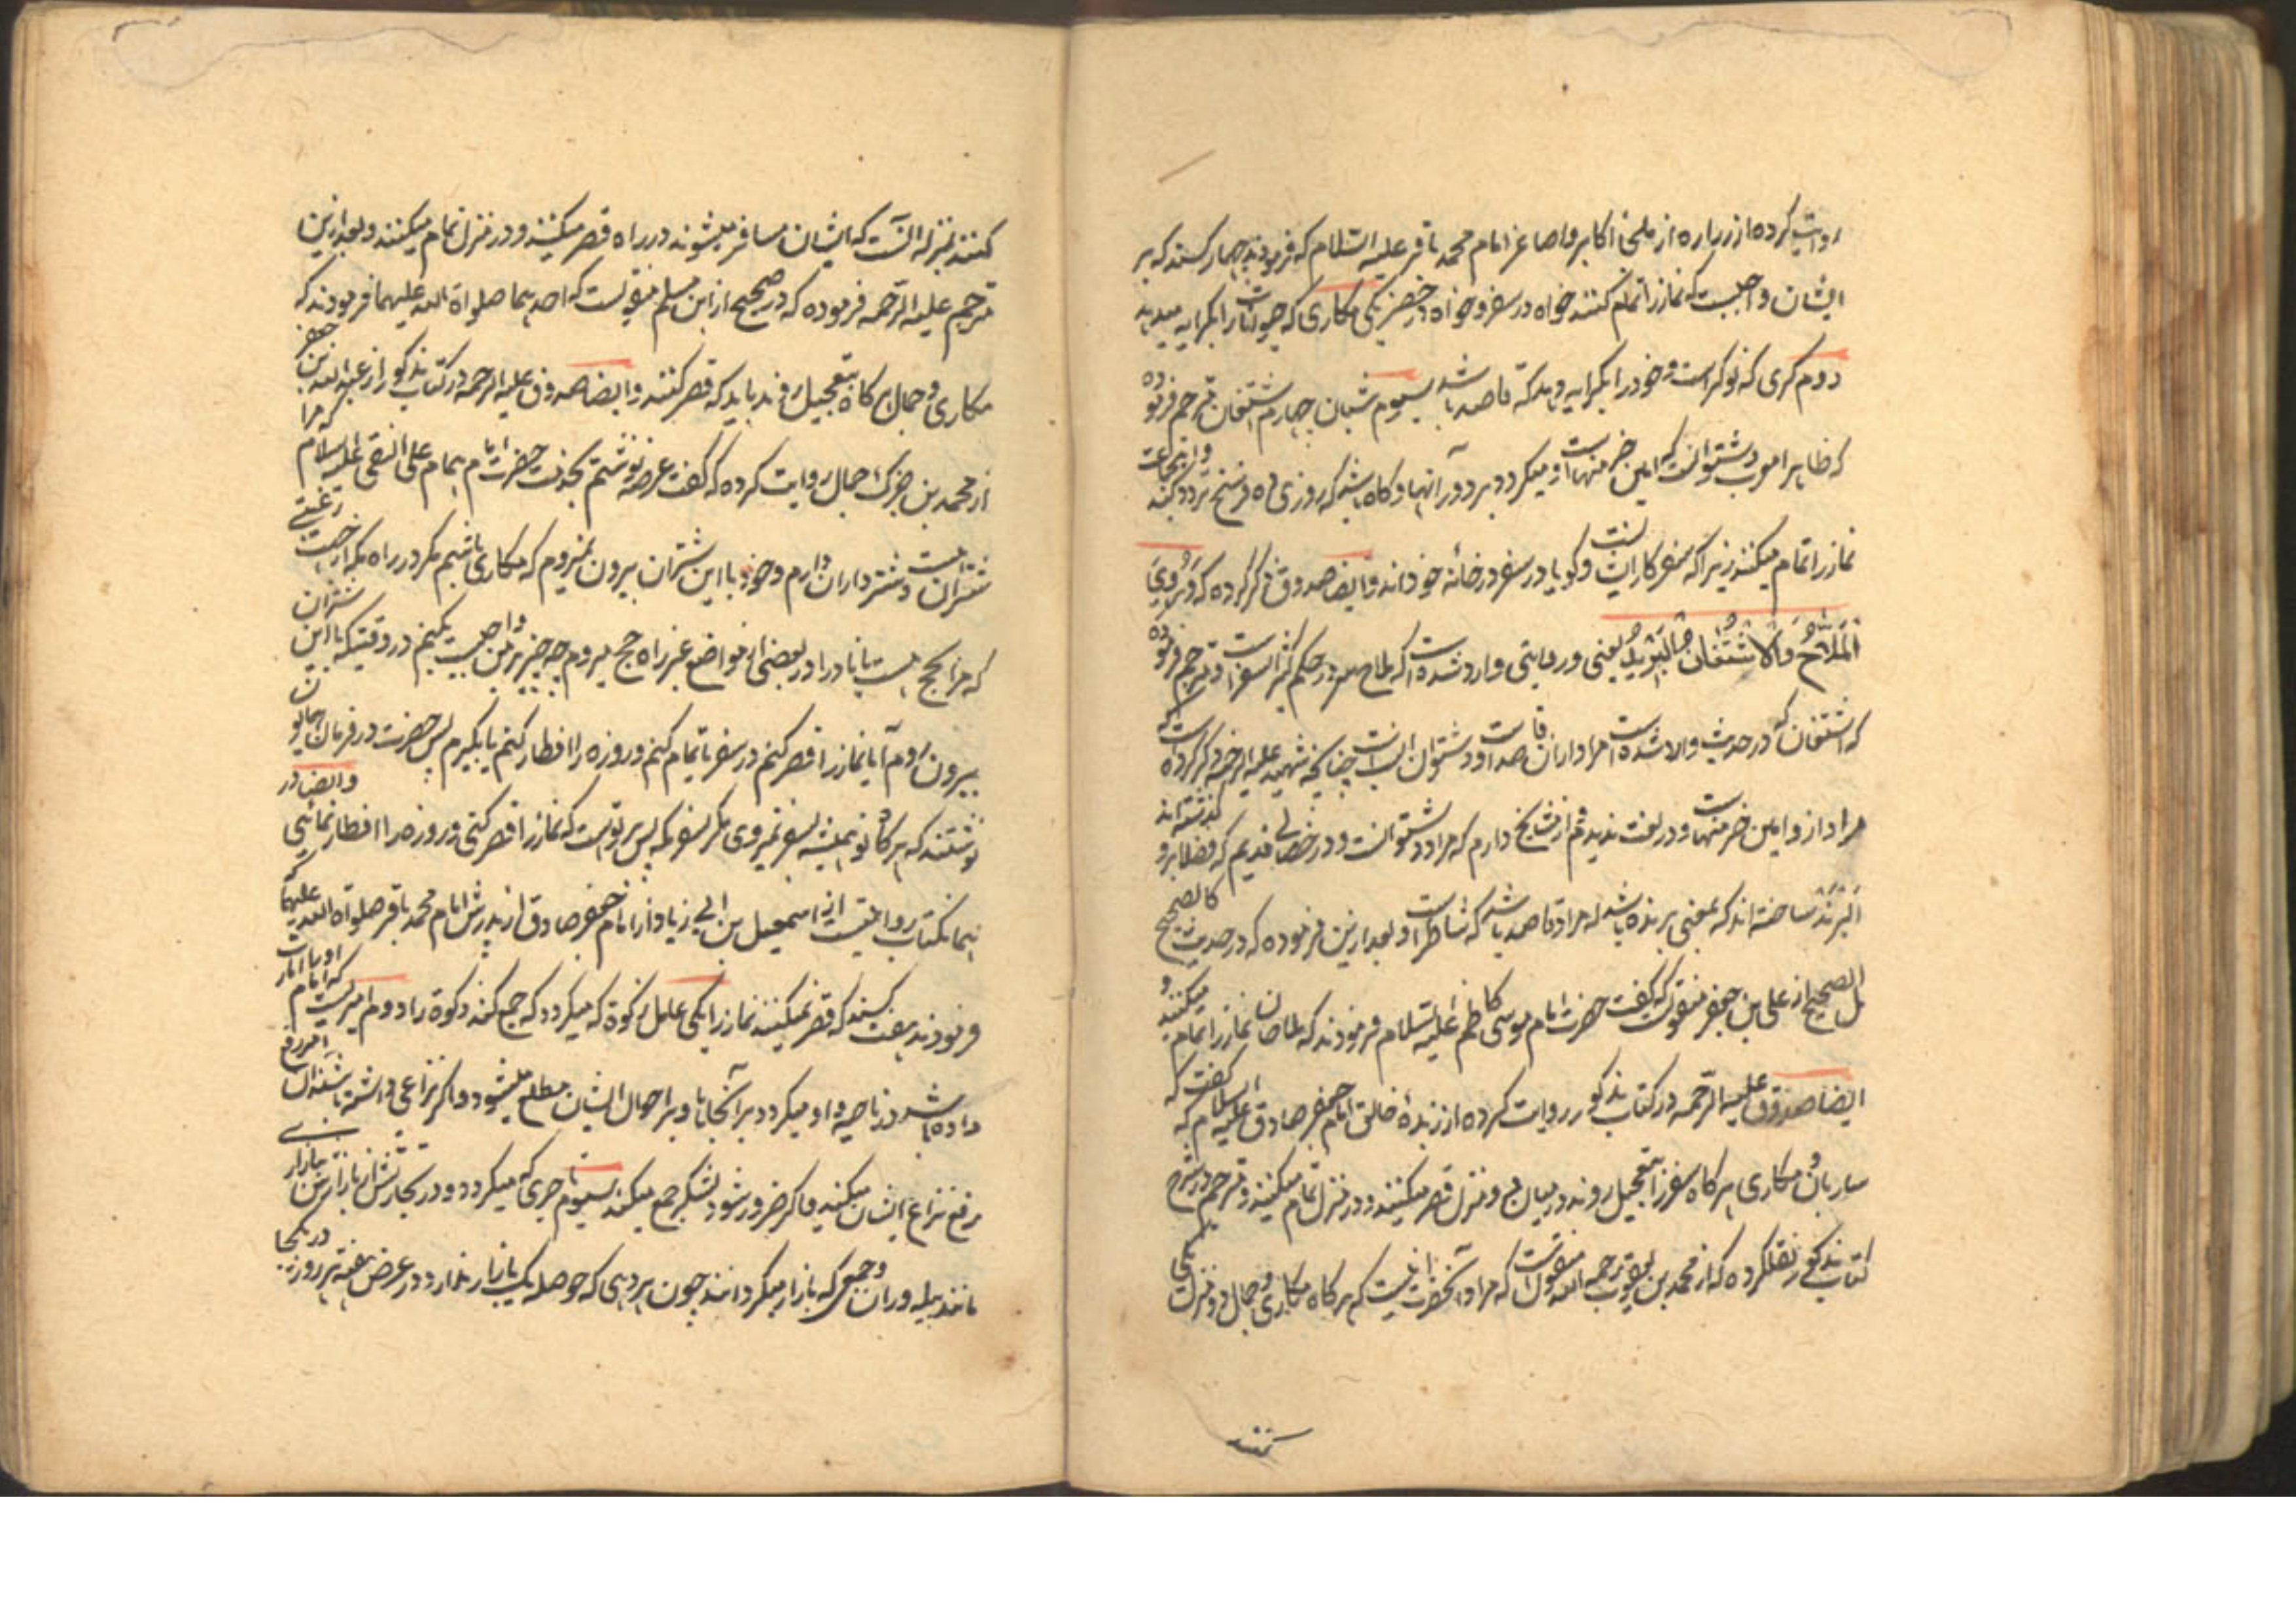 روایت کرده از زراره از ملجأ اکابر و اصاغر امام محمد باقر علیه السلام که فرمودند چهار کسند که بر
ایشان واجبست که نماز را تمام کنند خواه در سفر و خواه در حضر یکی مکاری که حیوانات را بکرایه میدهد
دوم کری که نوکر است و خود را بکرایه دهد که قاصد باشد سیوم شبان چهارم اشتقان مترجم فرموده
که ظاهرا معرب دشتبوانست که امین خرمنهاست و میکردد بر دور آنها و کاه باشد که روزی ده فرسخ تردد کند و اینجماعت
نماز را تمام میکنند زیرا که سفر کار ایشانست و کویا در سفر در خانه خوداند و ایضا صدوق ذکر کرده که و روی
الملاح و الاشتقان البرید یعنی و روایتی وارد شده است که ملاح در حکم کثیر السفر است و مترجم فرموده
که اشتقان که در حدیث والا شده است مراد از ان قاصد است و دشتوان است چنانچه شهید علیه الرحمه ذکر کرده است که
مراد از و امین خرمنهاست و در لغت ندیدم از مشایخ دارم که مراد دشتوانست و در خصال قدیم که فضلا برو گذشته اند
البرند ساخته اند که بمعنی برنده باشد که مراد قاصد باشد که شاطر است و بعد ازین فرموده که در حدیث کالصحیح
بل الصحیح از علی بن جعفر منقولست که گفت حضرت امام موسی کاظم علیه السلام فرمودند که ملاحان نماز را تمام میکنند و
ایضا صدوق علیه الرحمه در کتاب مذکور روایت کرده از زبدهٔ خالق امام جعفر صادق علیه السلام که گفت که
ساربان و مکاری هر کاه سفر را بتعجیل روند در میان دو منزل قصر میکنند و در منزل تمام میکنند و مترجم در شرح
کتاب مذکور نقل کرده که از محمد بن یعقوب رحمه الله منقولست که مراد آنحضرت اینست که هر کاه مکاری و جمال دو منزل یکی
کنند
کنند بمنزله آنست که ایشان مسافر میشوند در راه قصر میکنند و در منزل تمام میکنند و بعد ازین
مترجم علیه الرحمه فرموده که در صحیح از ابن مسلم منقولست که احدیهما صلواة الله علیهما فرمودند که
مکاری و جمال هر کاه بتعجیل روند باید که قصر کنند و ایضا صدوق علیه الرحمه در کتاب مذکور از عبدالله بن جعفر
از محمد بن جزک جمال روایت کرده که گفت عرضه نوشتم بخدمت حضرت امام همام علی النقی علیه السلام که مرا
شتران هست و شترداران دارم و خود با این شتران بیرون نمیروم که مکاری باشم مگر در راه مکه از جهت رغبتی
که مرا بحج هست یا نادرا در بعضی از مواضع غیر راه حج میروم چه چیز بر من واجبست بکنم در وقتیکه با این شتران
بیرون روم آیا نماز را قصر کنم در سفر یا تمام کنم و روزه را افطار کنم یا بکیرم پس حضرت در فرمان همایون
نوشتند که هر کاه تو همیشه بسفر نمیروی مگر بسفر مکه پس بر تواست که نماز را قصر کنی و روزه را افطار نمائی و ایضا در
همان کتاب روایتست از اسمعیل بن ابی زیاد از امام جعفر صادق از پدرش امام محمد باقر صلواة الله علیهما که
فرمودند هفت کسند که قصر نمیکنند نماز را یکی عامل زکوة که میکردد که جمع کند زکوة را دوم امیریست که امام
داده باشد ناحیه و او میکردد بر آنجاها و بر احوال ایشان مطلع میشود و اکر نزاعی داشته باشند
رفع نزاع ایشان میکند و اکر ضرور شود لشکر جمع میکند سیوم تاجری که میکردد در تجارتش از بازار ببازار
مانند پیله وران و جمعی که بازار میکردانند چون هر دهی که حوصله یک بازار ندارد در عرض هفته هر روز در یکجا